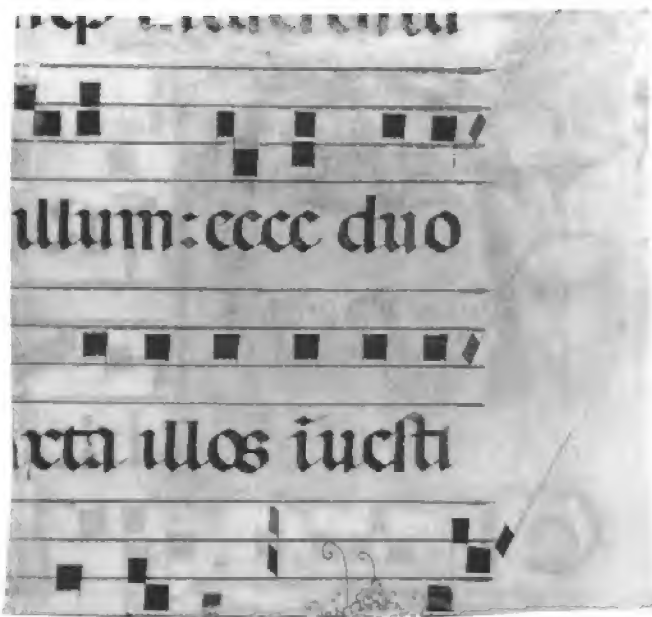 illum: ecce duo
xta illos i uesti